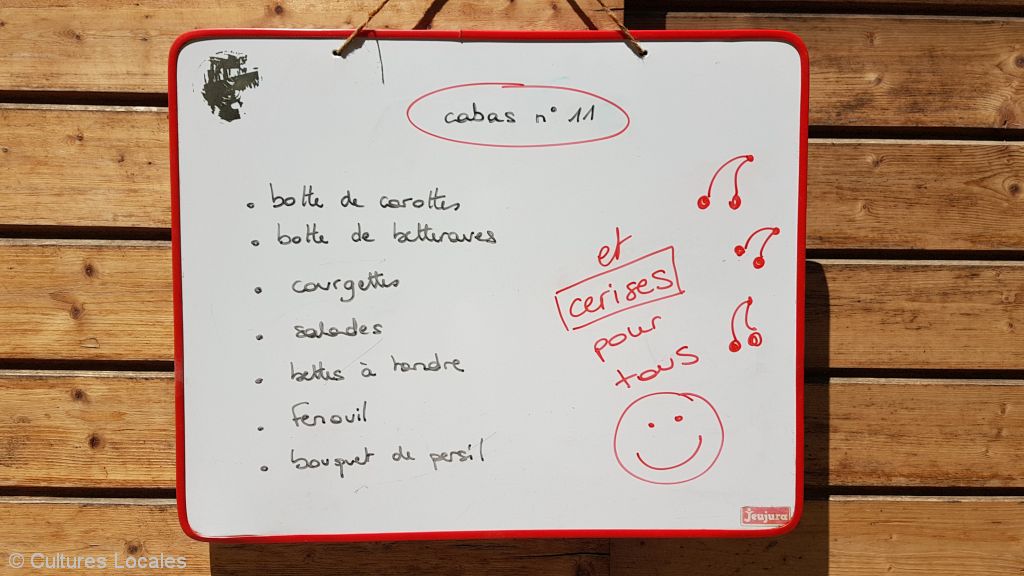 cabas n° 11
• botte de carottes
• botte de betteraves
• courgettes
• salades
• bettes à tondre
• fenouil
• bouquet de persil
et
cerises
pour
tous
Jeujura
© Cultures Locales